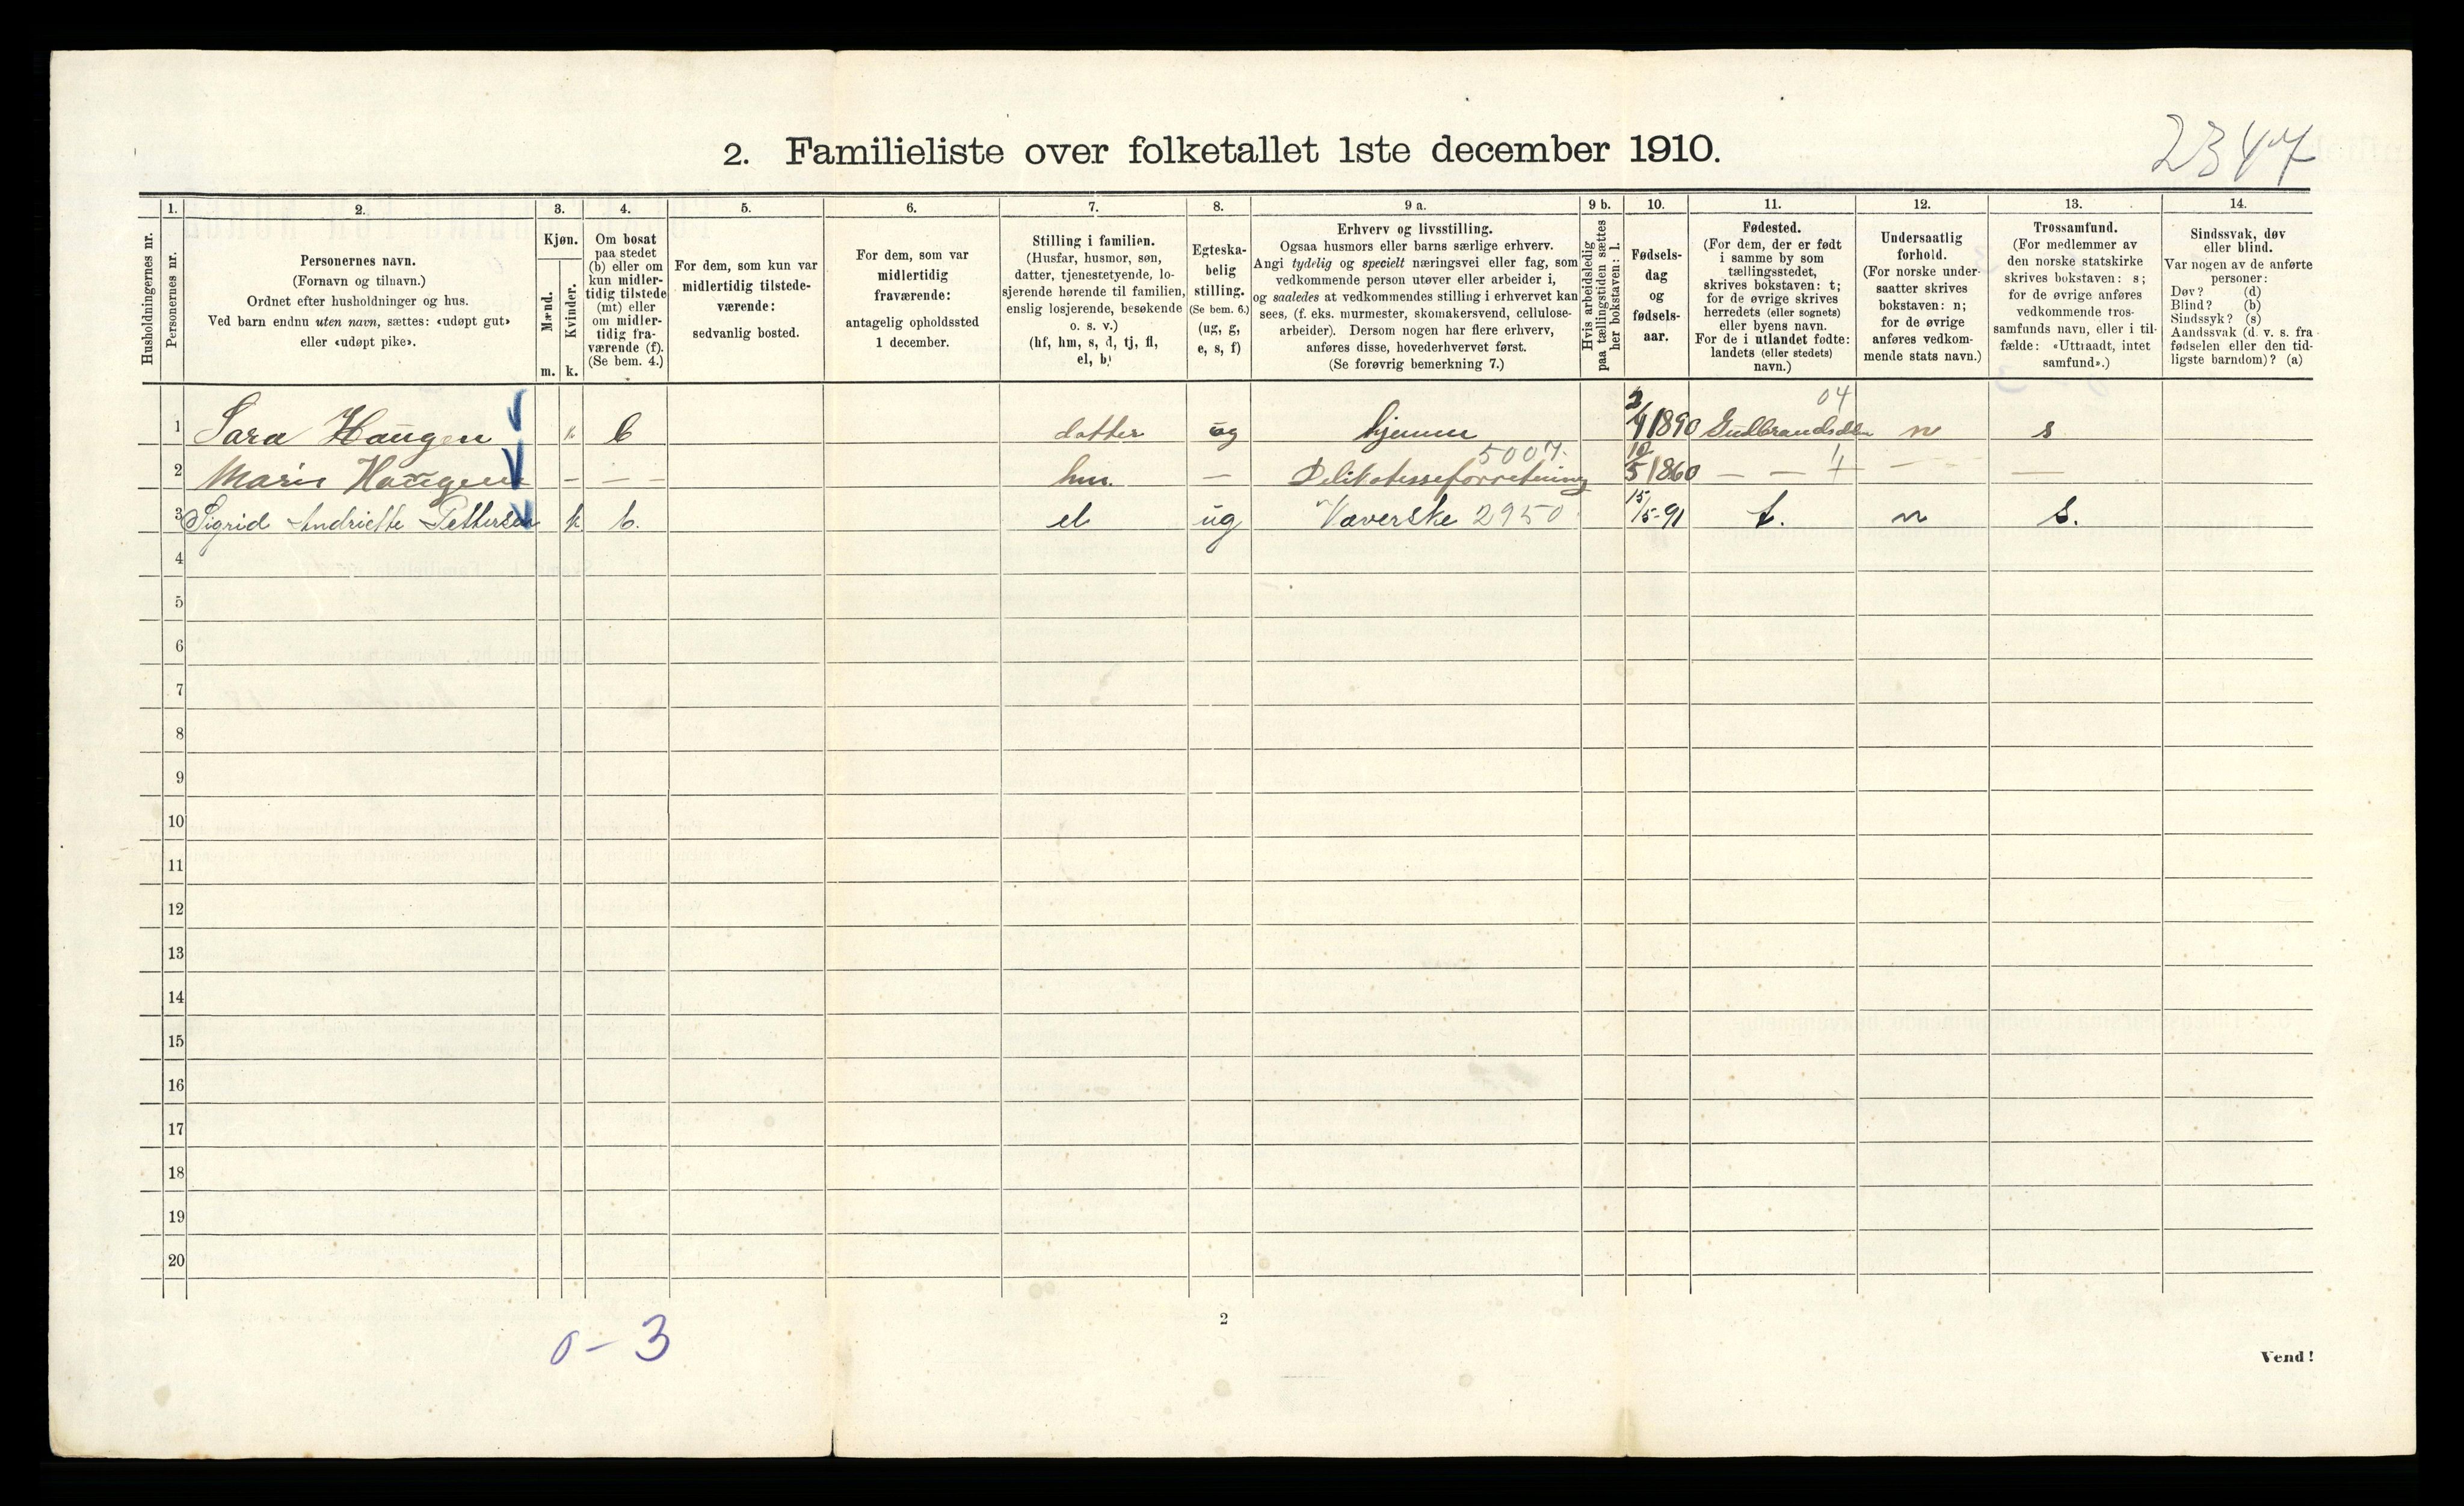 2347
2. Familieliste over folketallet 1ste december 1910.
1. 2. 3. 4. 5. 6. 7. 8. 9 a. 9 b. 10. 11. 12. 13. 14.
Husholdningernes nr.
Personernes nr.
Personernes navn.
(Fornavn og tilnavn.)
Ordnet efter husholdninger og hus.
Ved barn endnu uten navn, sættes: «udøpt gut»
eller «udøpt pike».
Kjøn.
Mænd.
Kvinder.
m. k.
Om bosat
paa stedet
(b) eller om
kun midler-
tidig tilstede
(mt) eller
om midler-
tidig fra-
værende (f).
(Se bem. 4.)
For dem, som kun var
midlertidig tilstede-
værende:
sedvanlig bosted.
For dem, som var
midlertidig
fraværende:
antagelig opholdssted
1 december.
Stilling i familien.
(Husfar, husmor, søn,
datter, tjenestetyende, lo-
sjerende hørende til familien,
enslig losjerende, besøkende
o. s. v.)
(hf, hm, s, d, tj, fl,
el, b)
Egteska-
belig
stilling.
(Se bem. 6.)
(ug, g,
e, s, f)
Erhverv og livsstilling.
Ogsaa husmors eller barns særlige erhverv.
Angi tydelig og specielt næringsvei eller fag, som
vedkommende person utøver eller arbeider i,
og saaledes at vedkommendes stilling i erhvervet kan
sees, (f. eks. murmester, skomakersvend, cellulose-
arbeider). Dersom nogen har flere erhverv,
anføres disse, hovederhvervet først.
(Se forøvrig bemerkning 7.)
Hvis arbeidsledig
paa tællingstiden sættes
her bokstaven: l.
Fødsels-
dag
og
fødsels-
aar.
Fødested.
(For dem, der er født
i samme by som
tællingsstedet,
skrives bokstaven: t;
for de øvrige skrives
herredets (eller sognets)
eller byens navn.
For de i utlandet fødte:
landets (eller stedets)
navn.)
Undersaatlig
forhold.
(For norske under-
saatter skrives
bokstaven: n;
for de øvrige
anføres vedkom-
mende stats navn.)
Trossamfund.
(For medlemmer av
den norske statskirke
skrives bokstaven: s;
for de øvrige anføres
vedkommende tros-
samfunds navn, eller i til-
fælde: «Uttraadt, intet
samfund».)
Sindssvak, døv
eller blind.
Var nogen av de anførte
personer:
Døv? (d)
Blind? (b)
Sindssyk? (s)
Aandssvak (d. v. s. fra
fødselen eller den tid-
ligste barndom)? (a)
04
1 Sara Haugen k b datter ug hjemme 1890 Gudbrandsdalen n s
5007.
2 Marie Haugen – – – hm. – Delikatesseforretning 10/5 1860 – – – –
3 Sigrid Andriette Pettersen k b. el ug Væverske 2950 15/5-91 t. n s.
4
5
6
7
8
9
10
11
12
13
14
15
16
17
18
19
20
0 – 3
2
Vend!